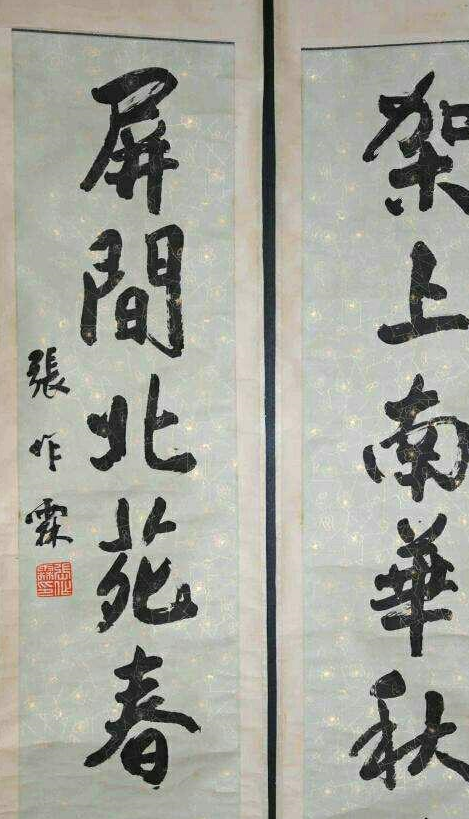 架上南華秋
屏間北苑春
張作霖